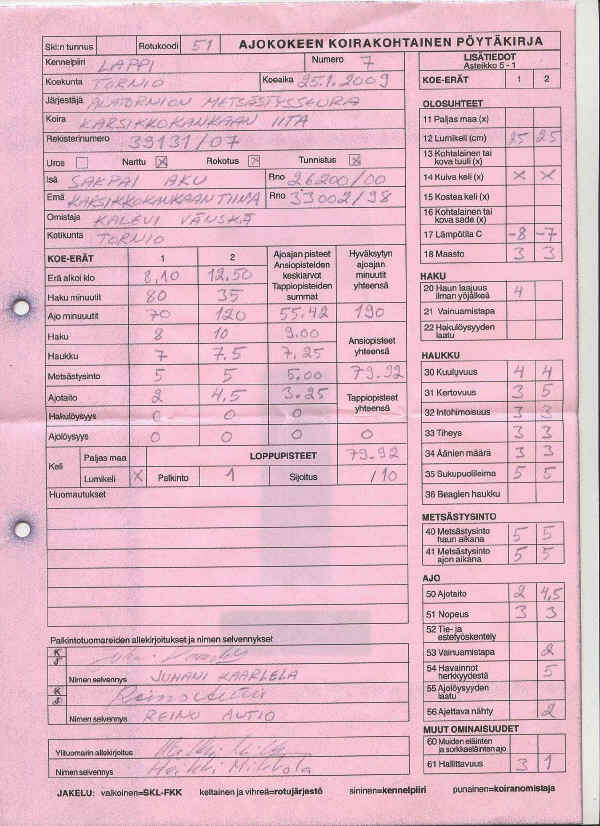 SKL:n tunnus Rotukoodi 51 AJOKOKEEN KOIRAKOHTAINEN PÖYTÄKIRJA
Kennelpiiri LAPPI Numero 7
Koekunta TORNIO Koeaika 25.1.2009
Järjestäjä ALATORNION METSÄSTYSSEURA
Koira KARSIKKOKANKAAN IITA
Rekisterinumero 39131/07
Uros Narttu X Rokotus X Tunnistus X
Isä SAKPAI AKU Rno 26200/00
Emä KARSIKKOKANKAAN TIINA Rno 33002/98
Omistaja KALEVI VÄNSKÄ
Kotikunta TORNIO
KOE-ERÄT 1 2 Ajoajan pisteet Ansiopisteiden keskiarvot Tappiopisteiden summat Hyväksytyn ajoajan minuutit yhteensä
Erä alkoi klo 8,10 12,50
Haku minuutit 80 35
Ajo minuutit 70 120 55.42 190
Haku 8 10 9.00 Ansiopisteet yhteensä
Haukku 7 7,5 7,25
Metsästysinto 5 5 5,00 79.92
Ajotaito 2 4,5 3.25 Tappiopisteet yhteensä
Hakulöysyys 0 0 0
Ajolöysyys 0 0 0 0
Keli Paljas maa LOPPUPISTEET 79.92
Lumikeli X Palkinto 1 Sijoitus /10
Huomautukset
Palkintotuomareiden allekirjoitukset ja nimen selvennykset
K
S
Nimen selvennys JUHANI KAARLELA
K
S
Nimen selvennys REINO AUTIO
Ylituomarin allekirjoitus
Nimen selvennys Heikki Mikkola
LISÄTIEDOT
Asteikko 5 - 1
KOE-ERÄT 1 2
OLOSUHTEET
11 Paljas maa (x)
12 Lumikeli (cm) 25 25
13 Kohtalainen tai kova tuuli (x)
14 Kuiva keli (x) X X
15 Kostea keli (x)
16 Kohtalainen tai kova sade (x)
17 Lämpötila C -8 -7
18 Maasto 3 3
HAKU
20 Haun laajuus ilman yöjälkeä 4
21 Vainuamistapa
22 Hakulöysyyden laatu
HAUKKU
30 Kuuluvuus 4 4
31 Kertovuus 3 5
32 Intohimoisuus 3 3
33 Tiheys 3 3
34 Äänien määrä 3 3
35 Sukupuolileima 5 5
36 Beaglen haukku
METSÄSTYSINTO
40 Metsästysinto haun aikana 5 5
41 Metsästysinto ajon aikana 5 5
AJO
50 Ajotaito 2 4,5
51 Nopeus 3 3
52 Tie- ja estetyöskentely
53 Vainuamistapa 2
54 Havainnot herkkyydestä 5
55 Ajolöysyyden laatu
56 Ajettava nähty 2
MUUT OMINAISUUDET
60 Muiden eläinten ja sorkkaeläinten ajo
61 Hallittavuus 3 1
JAKELU: valkoinen=SKL-FKK keltainen ja vihreä=rotujärjestö sininen=kennelpiiri punainen=koiranomistaja